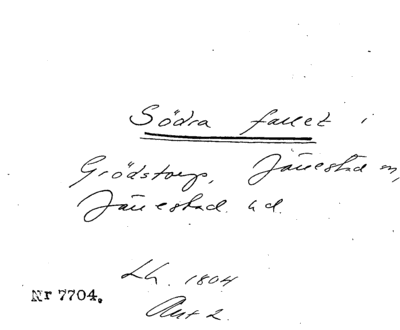 Södra fallet i
Grödstorp, Järrestad m,
Järrestad hd.
Lh. 1804
Nr 7704.
Akt 2.